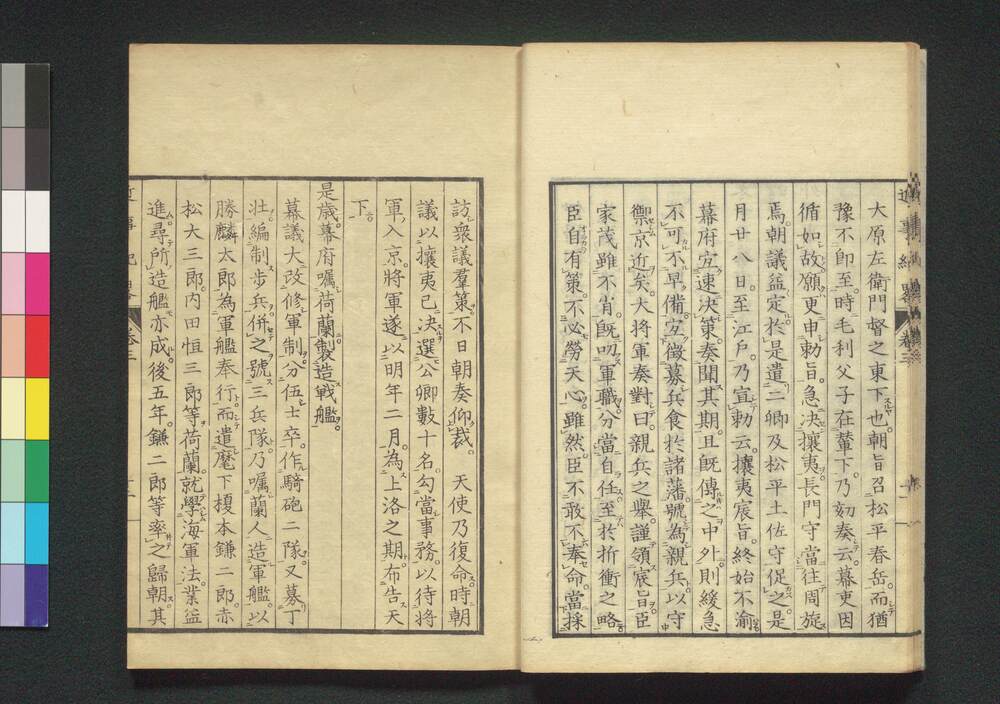 大原左衛門督之東下也。朝旨召松平春岳。而猶
豫不卽至。時毛利父子在輦下。乃劾奏云。幕吏因
循如故。願更申勅旨。急決攘夷。長門守當往周旋
焉。朝議益定。於是遣二卿及松平土佐守促之。是
月廿八日。至江戸。乃宣勅云。攘夷宸旨。終始不渝
幕府宜速決策。奏聞其期。且旣傳之中外。則緩急
不可不早備。宜徵募兵食於諸藩。號為親兵。以守
禦京近矣。大将軍奏對曰。親兵之擧。謹領宸旨。臣
家茂雖不肖。旣叨軍職。分當自任。至於折衝之略。
臣自有策。不必勞天心。雖然。臣不敢不奉命。當採
訪衆議羣策。不日朝奏仰裁。 天使乃復命。時朝
議以攘夷已決。選公卿數十名。勾當事務。以待将
軍入京。將軍遂以明年二月。為上洛之期。布告天
下。
是歲。幕府囑荷蘭製造戰艦。
幕議大改修軍制。分伍士卒。作騎砲二隊。又募丁
壯。編制步兵。併之號三兵隊。乃囑蘭人造軍艦。以
勝麟太郎為軍艦奉行。而遣麾下榎本鎌二郎。赤
松大三郎。内田恒三郎等荷蘭。就學海軍法。業益
進。尋所造艦亦成。後五年。鎌二郎等率之歸朝。其
卷三